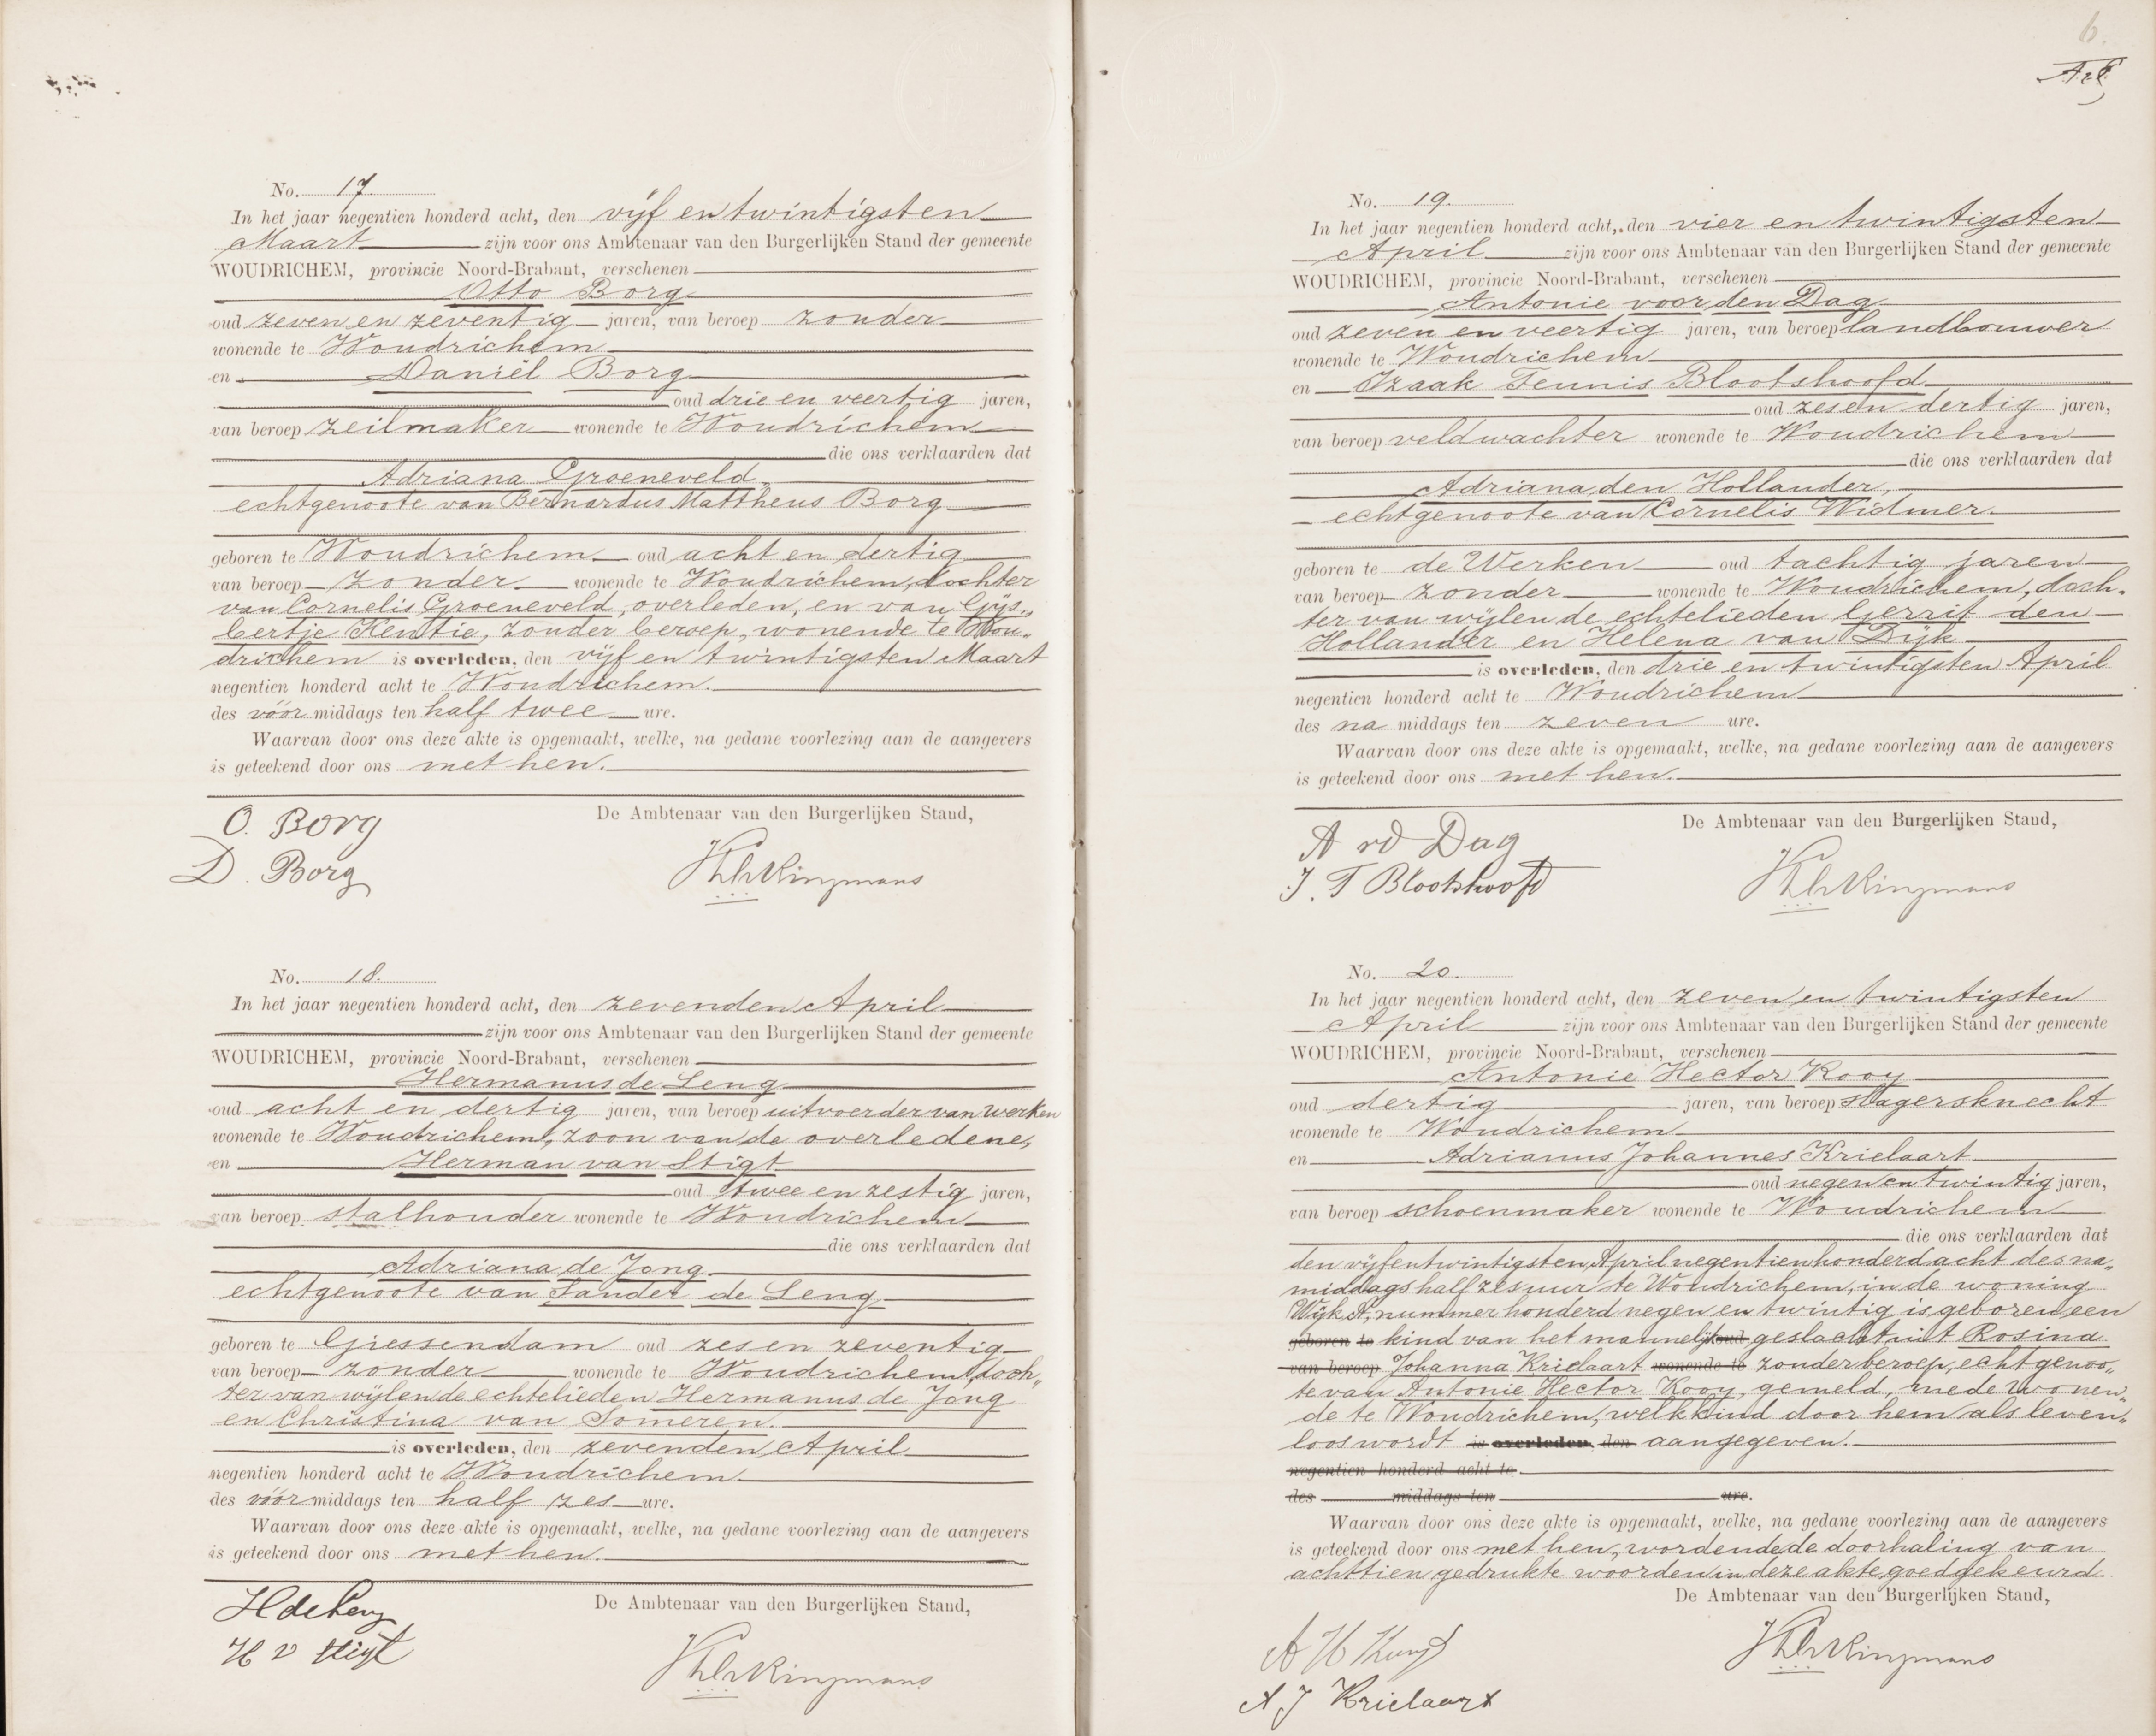 No. 17.
In het jaar negentien honderd acht, den vijf en twintigsten
Maart zijn voor ons Ambtenaar van den Burgerlijken Stand der gemeente
WOUDRICHEM, provincie Noord-Brabant, verschenen
Otto Borg
oud zeven en zeventig jaren, van beroep zonder
wonende te Woudrichem
en Daniël Borg
oud drie en veertig jaren,
van beroep zeilmaker wonende te Woudrichem
die ons verklaarden dat
Adriana Groeneveld
echtgenoote van Bernardus Mattheus Borg
geboren te Woudrichem oud acht en dertig
van beroep zonder wonende te Woudrichem, dochter
van Cornelis Groeneveld, overleden, en van Gijs„
bertje Kentie, zonder beroep, wonende te Wou„
drichem is overleden, den vijf en twintigsten Maart
negentien honderd acht te Woudrichem.
des vóór middags ten half twee ure.
Waarvan door ons deze akte is opgemaakt, welke, na gedane voorlezing aan de aangevers
is geteekend door ons met hen.
De Ambtenaar van den Burgerlijken Stand,
O. Borg
D. Borg
No. 18.
In het jaar negentien honderd acht, den zevenden April
zijn voor ons Ambtenaar van den Burgerlijken Stand der gemeente
WOUDRICHEM, provincie Noord-Brabant, verschenen
Hermanus de Leng
oud acht en dertig jaren, van beroep uitvoerder van werken
wonende te Woudrichem, zoon van de overledene,
en Herman van Stigt
oud twee en zestig jaren,
van beroep stalhouder wonende te Woudrichem
die ons verklaarden dat
Adriana de Jong
echtgenoote van Sander de Leng
geboren te Giessendam oud zes en zeventig
van beroep zonder wonende te Woudrichem, doch„
ter van wijlen de echtelieden Hermanus de Jong
en Christina van Someren.
is overleden, den zevenden April
negentien honderd acht te Woudrichem
des vóór middags ten half zes ure.
Waarvan door ons deze akte is opgemaakt, welke, na gedane voorlezing aan de aangevers
is geteekend door ons met hen.
De Ambtenaar van den Burgerlijken Stand,
H de Leng
H v Stigt
6.
No. 19.
In het jaar negentien honderd acht, den vier en twintigsten
April zijn voor ons Ambtenaar van den Burgerlijken Stand der gemeente
WOUDRICHEM, provincie Noord-Brabant, verschenen
Antonie voor den Dag
oud zeven en veertig jaren, van beroep landbouwer
wonende te Woudrichem
en Izaak Teunis Blootshoofd
oud zes en dertig jaren,
van beroep veldwachter wonende te Woudrichem
die ons verklaarden dat
Adriana den Hollander,
echtgenoote van Cornelis Widmer.
geboren te de Werken oud tachtig jaren
van beroep zonder wonende te Woudrichem, doch„
ter van wijlen de echtelieden Gerrit den
Hollander en Helena van Dijk
is overleden, den drie en twintigsten April
negentien honderd acht te Woudrichem
des na middags ten zeven ure.
Waarvan door ons deze akte is opgemaakt, welke, na gedane voorlezing aan de aangevers
is geteekend door ons met hen.
De Ambtenaar van den Burgerlijken Stand,
A vd Dag
J. T Blootshoofd
No. 20.
In het jaar negentien honderd acht, den zeven en twintigsten
April zijn voor ons Ambtenaar van den Burgerlijken Stand der gemeente
WOUDRICHEM, provincie Noord-Brabant, verschenen
Antonie Hector Kooy
oud dertig jaren, van beroep slagersknecht
wonende te Woudrichem
en Adrianus Johannes Krielaart
oud negen en twintig jaren,
van beroep schoenmaker wonende te Woudrichem
die ons verklaarden dat
den vijfentwintigsten April negentienhonderdacht des na„
middags half zes uur te Woudrichem, in de woning
Wijk A, nummer honderd negen en twintig is geboren een
geboren te kind van het mannelijk oud geslacht uit Rosina
van beroep Johanna Krielaart wonende te zonder beroep, echtgenoo„
te van Antonie Hector Kooy, gemeld, mede wonen„
de te Woudrichem, welk kind door hem als leven„
loos wordt is overleden, den aangegeven.
negentien honderd acht te
des middags ten ure.
Waarvan door ons deze akte is opgemaakt, welke, na gedane voorlezing aan de aangevers
is geteekend door ons met hen, wordende de doorhaling van
achttien gedrukte woorden in deze akte goedgekeurd.
De Ambtenaar van den Burgerlijken Stand,
A J Krielaart